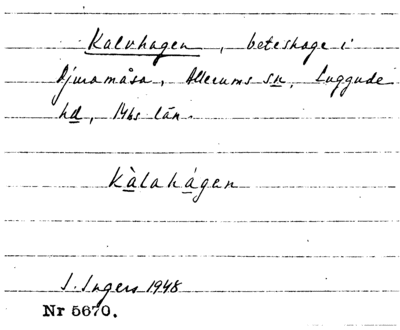 Kalvhagen, beteshage i
Djuramåsa, Allerums sn, Luggude
hd, Mhs län.
kàlahágen
I. Ingers 1948
Nr 5670.